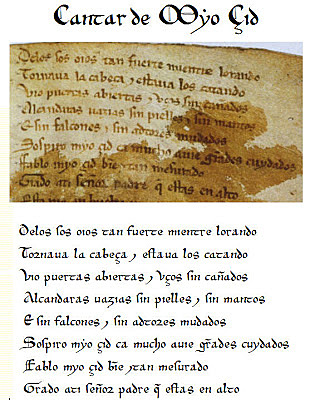 Cantar de Myo Çid
Delos sos oios tan fuerte mientre lorando
Tornaua la cabeça ⁊ estaua los catando
Vio puertas abiertas ⁊ vços sin cañados
Alcandaras uazias sin pielles ⁊ sin mantos
E sin falcones ⁊ sin adtores mudados
Sospiro myo çid ca mucho auie grãdes cuydados
Fablo myo çid bie ⁊ tan mesurado
Grado ati señor padre q̃ estas en alto
Delos sos oios tan fuerte mientre lorando
Tornaua la cabeça ⁊ estaua los catando
Vio puertas abiertas ⁊ vços sin cañados
Alcandaras uazias sin pielles ⁊ sin mantos
E sin falcones ⁊ sin adtores mudados
Sospiro myo çid ca mucho auie gr̃ades cuydados
Fablo myo çid bĩe ⁊tan mesurado
Grado ati señor padre q̃ estas en alto